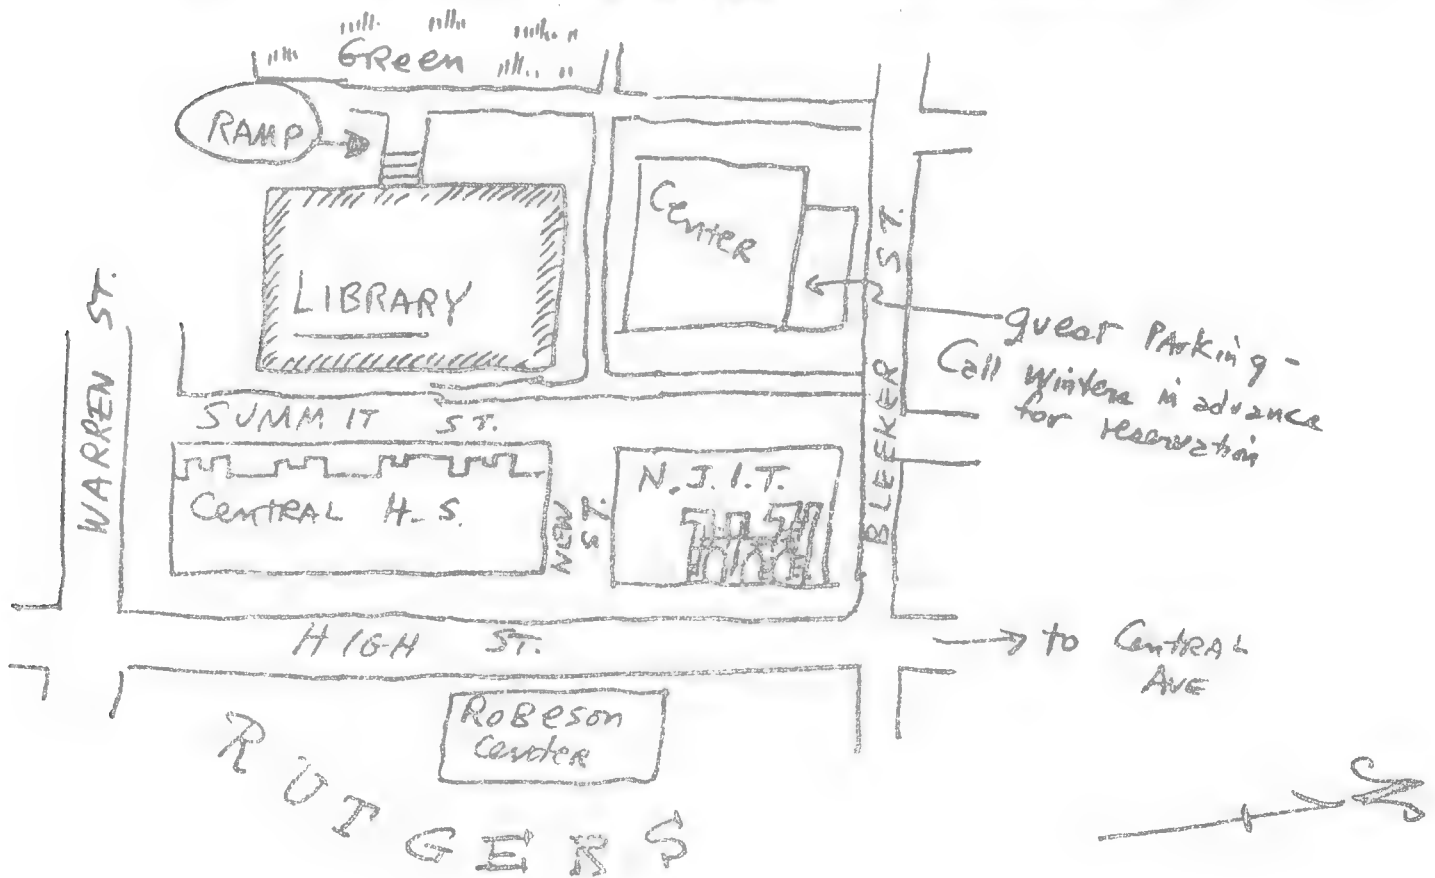 Green
RAMP
Center
LIBRARY
WARREN ST.
BLEEKER ST.
guest Parking -
Call Winters in advance
for reservation
SUMMIT ST.
CENTRAL H.S.
NEW ST.
N.J.I.T.
HIGH ST.
to Central
Ave
Robeson
Center
RUTGERS
N